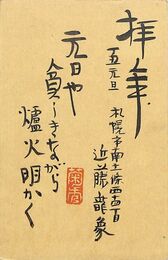 拝年
五元旦
札幌市南十條西四百
近藤龍象
元日や
貧しきながら
爐火明かく